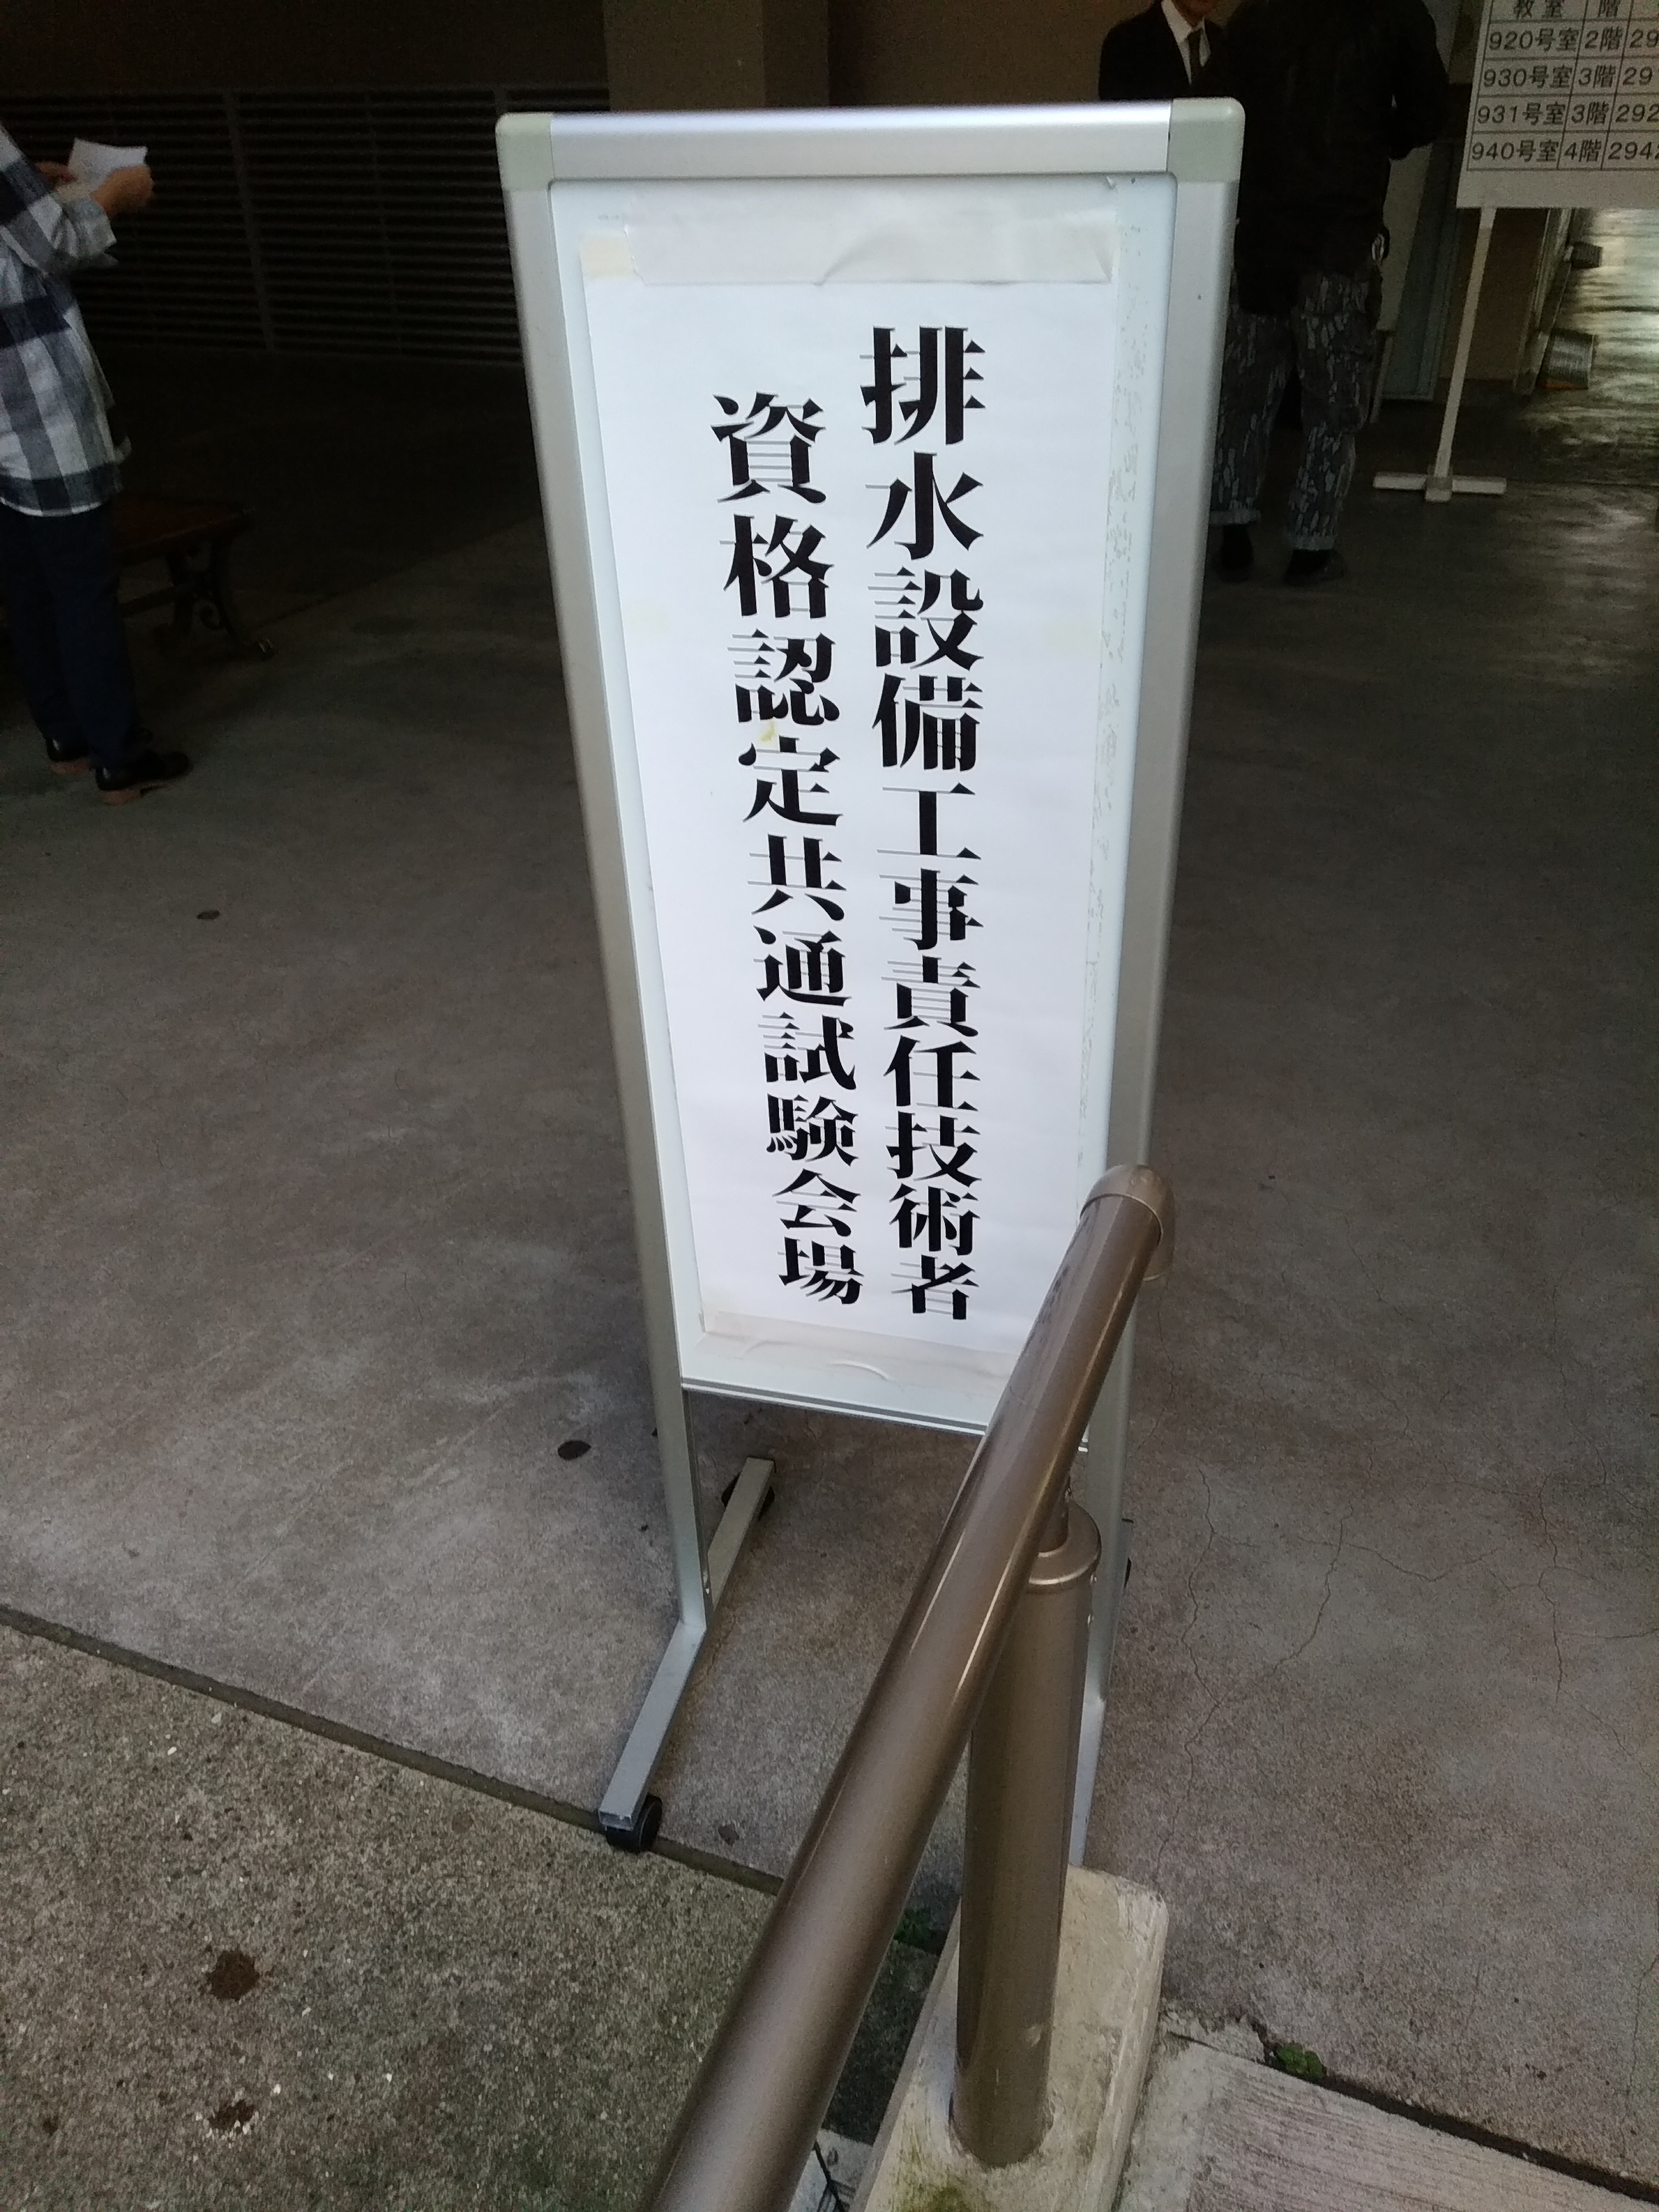 排水設備工事責任技術者
資格認定共通試験会場
教室 階
920号室 2階 29
930号室 3階 29
931号室 3階 292
940号室 4階 294